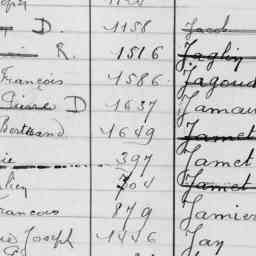 D. 1158 Jacob
R. 1516 Jaglin
François 1586 Jagoud
Pierre D 1637
Bertrand 1649 Jamet
397 Jamet
304 Jamet
François 879 Jamier
Joseph 1446 Jay